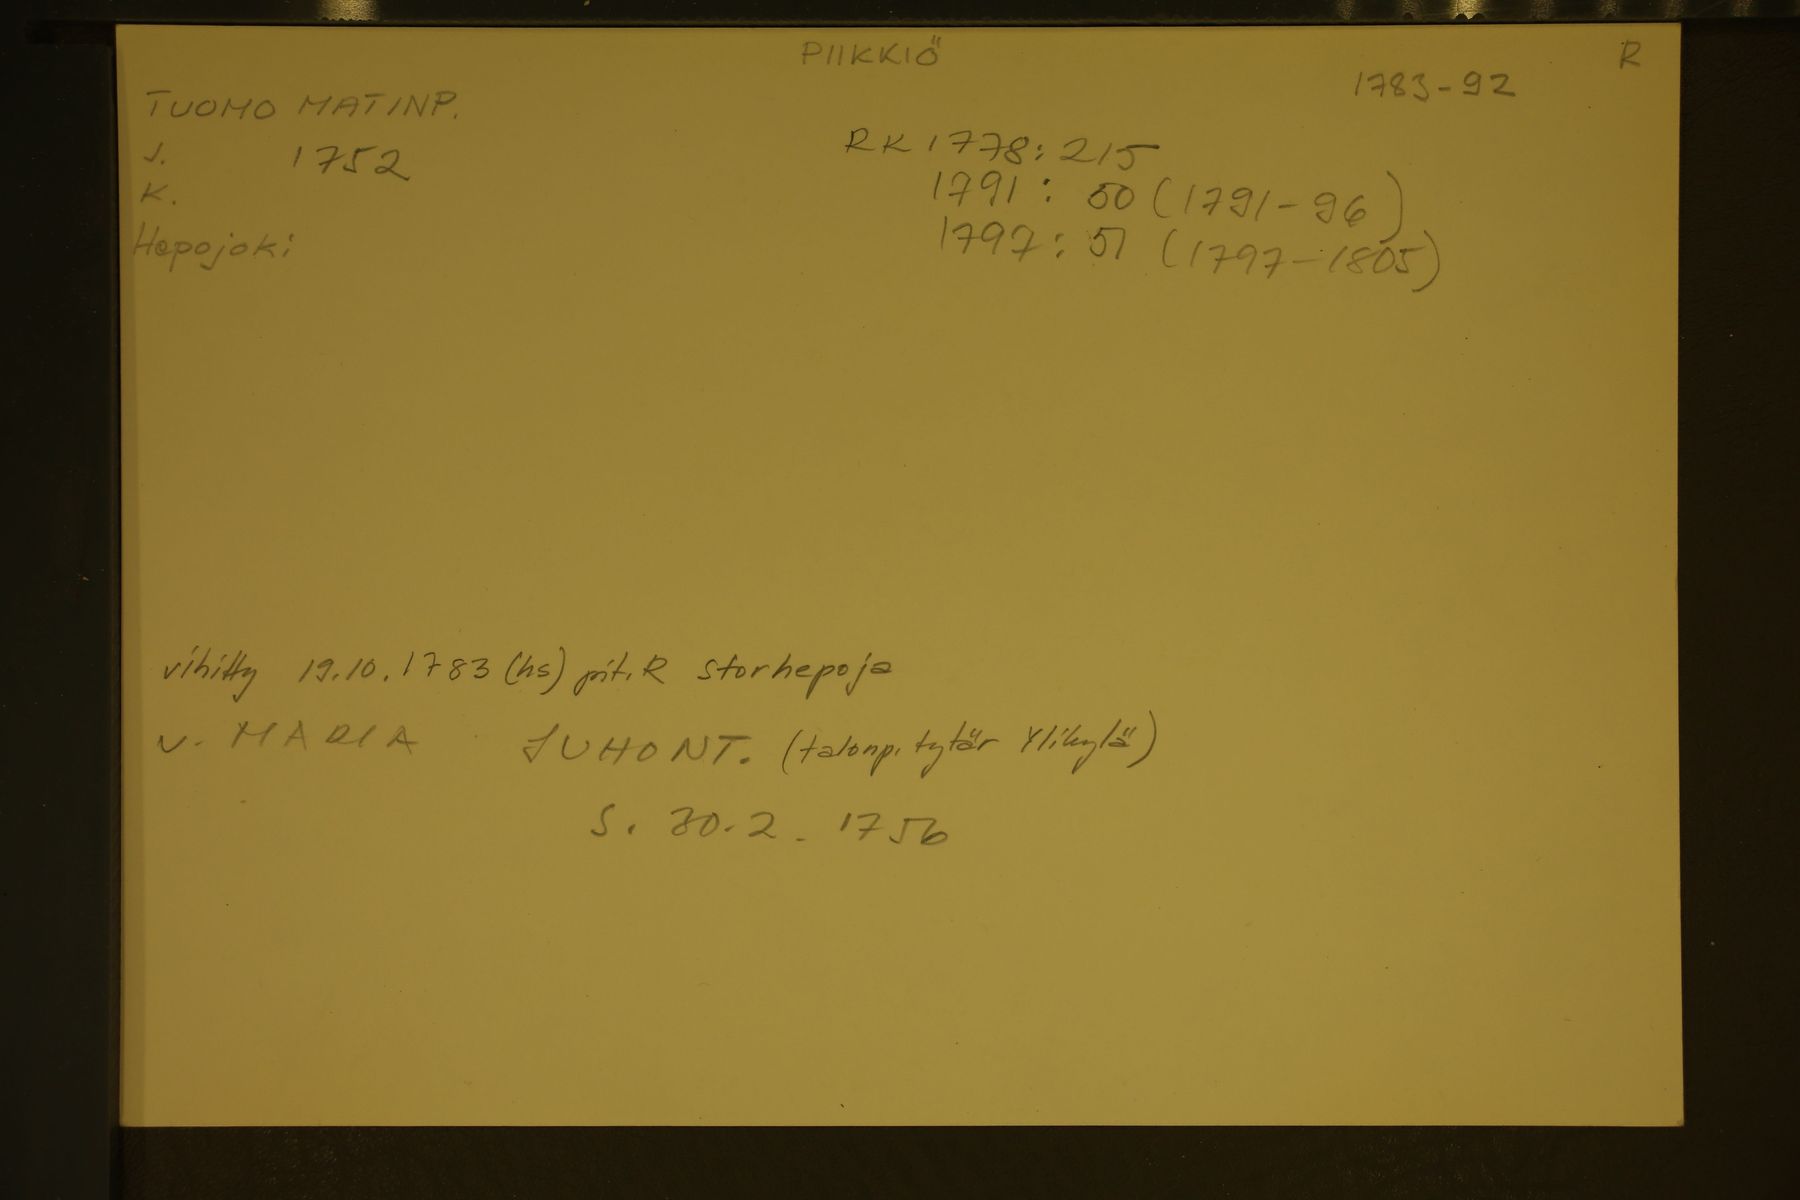 PIIKKIÖ
R
1783-92
TUOMO MATINP.
RK 1778: 215
S. 1752
1791: 50 (1791-96)
K.
1797: 51 (1797-1805)
Hepojoki
vihitty 19.10.1783 (hs) pit. R Storhepoja
v. MARIA JUHONT. (talonp. tytär Ylikylä)
S. 30.2. 1756